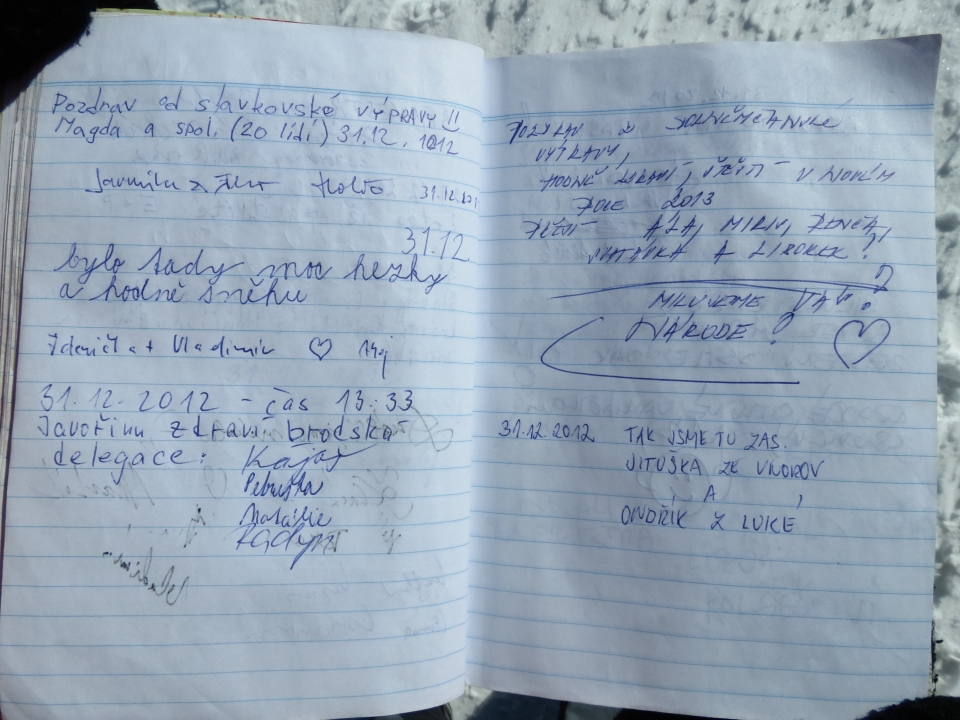 Pozdrav od slavkovské VÝPRAVY!!
Magda a spol. (20 lidí) 31.12.1012
Jarmila z 31.12.201
31.12
bylo tady moc hezky
a hodně sněhu
Zdenička + Vladimir ♡
31.12.2012 - čas 13:33
Javořinu zdraví brodská
delegace: Kája
Petruška
Natálie
Radym
POZDRAV Z
VÝPRAVY,
HODNĚ ZDRAVÍ, ŠTĚSTÍ V NOVÉM
ROCE 2013
A LIBOREK!
MILUJEME VÁS!
NÁRODE! ♡
31.12.2012 TAK JSME TU ZAS.
JITUŠKA ZE VNOROV
A
ONDŘÍK Z LUKÉ